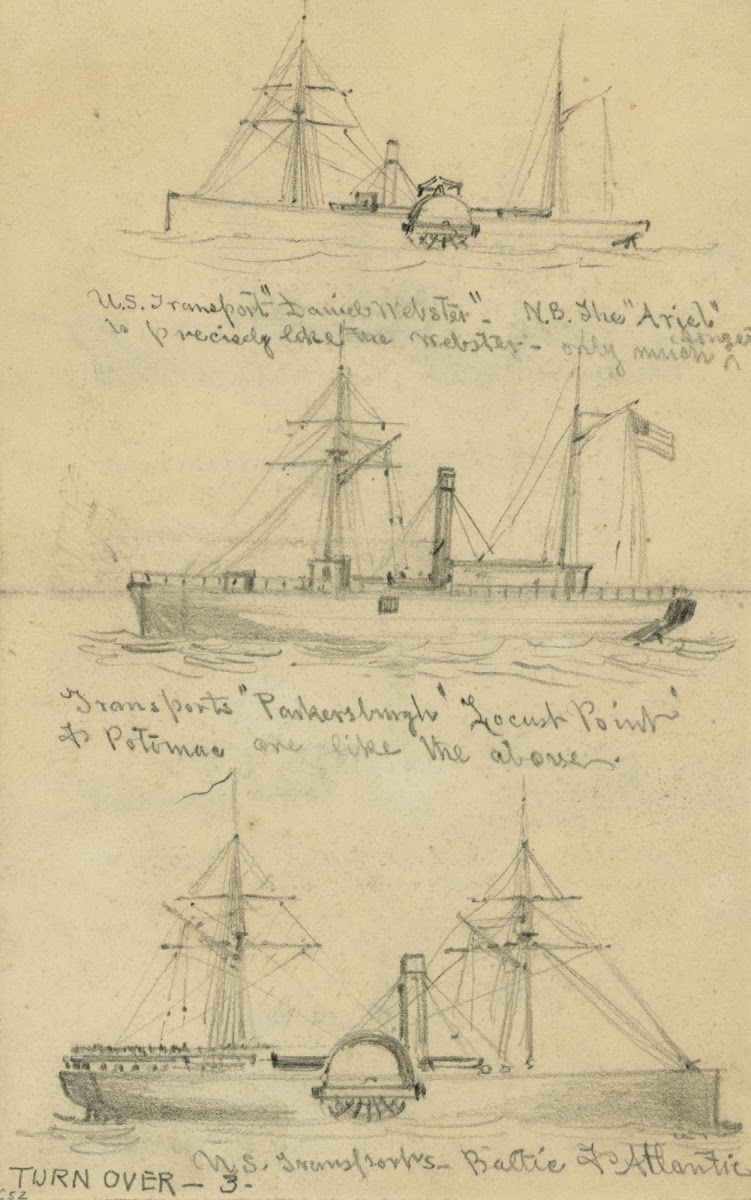 U.S. Transport "Daniel Webster" - N.B. The "Ariel"
is precisely like the Webster - only much ^ longer
Transports "Parkersburgh" "Locust Point"
& Potomac are like the above.
U.S. Transports - Baltic & Atlantic
TURN OVER - 3 -